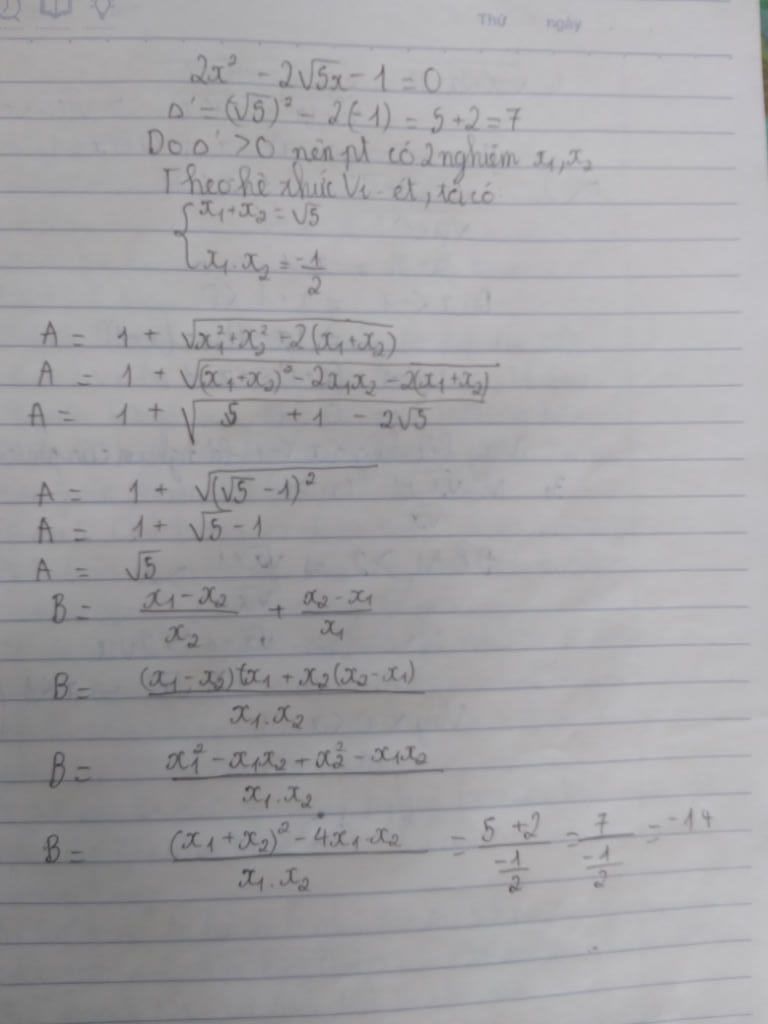 Thứ ngày
2x² - 2√5x - 1 = 0
Δ' = (√5)² - 2(-1) = 5 + 2 = 7
Do Δ' > 0 nên pt có 2 nghiệm x₁, x₂
Theo hệ thức Vi-ét, ta có
{ x₁ + x₂ = √5
x₁ . x₂ = -1/2
A = 1 + √(x₁² + x₂² - 2(x₁ + x₂))
A = 1 + √((x₁ + x₂)² - 2x₁x₂ - 2(x₁ + x₂))
A = 1 + √(5 + 1 - 2√5)
A = 1 + √((√5 - 1)²)
A = 1 + √5 - 1
A = √5
B = (x₁ - x₂)/x₂ + (x₂ - x₁)/x₁
B = ((x₁ - x₂)x₁ + x₂(x₂ - x₁))/(x₁ . x₂)
B = (x₁² - x₁x₂ + x₂² - x₁x₂)/(x₁ . x₂)
B = ((x₁ + x₂)² - 4x₁ . x₂)/(x₁ . x₂) = (5 + 2)/(-1/2) = 7/(-1/2) = -14